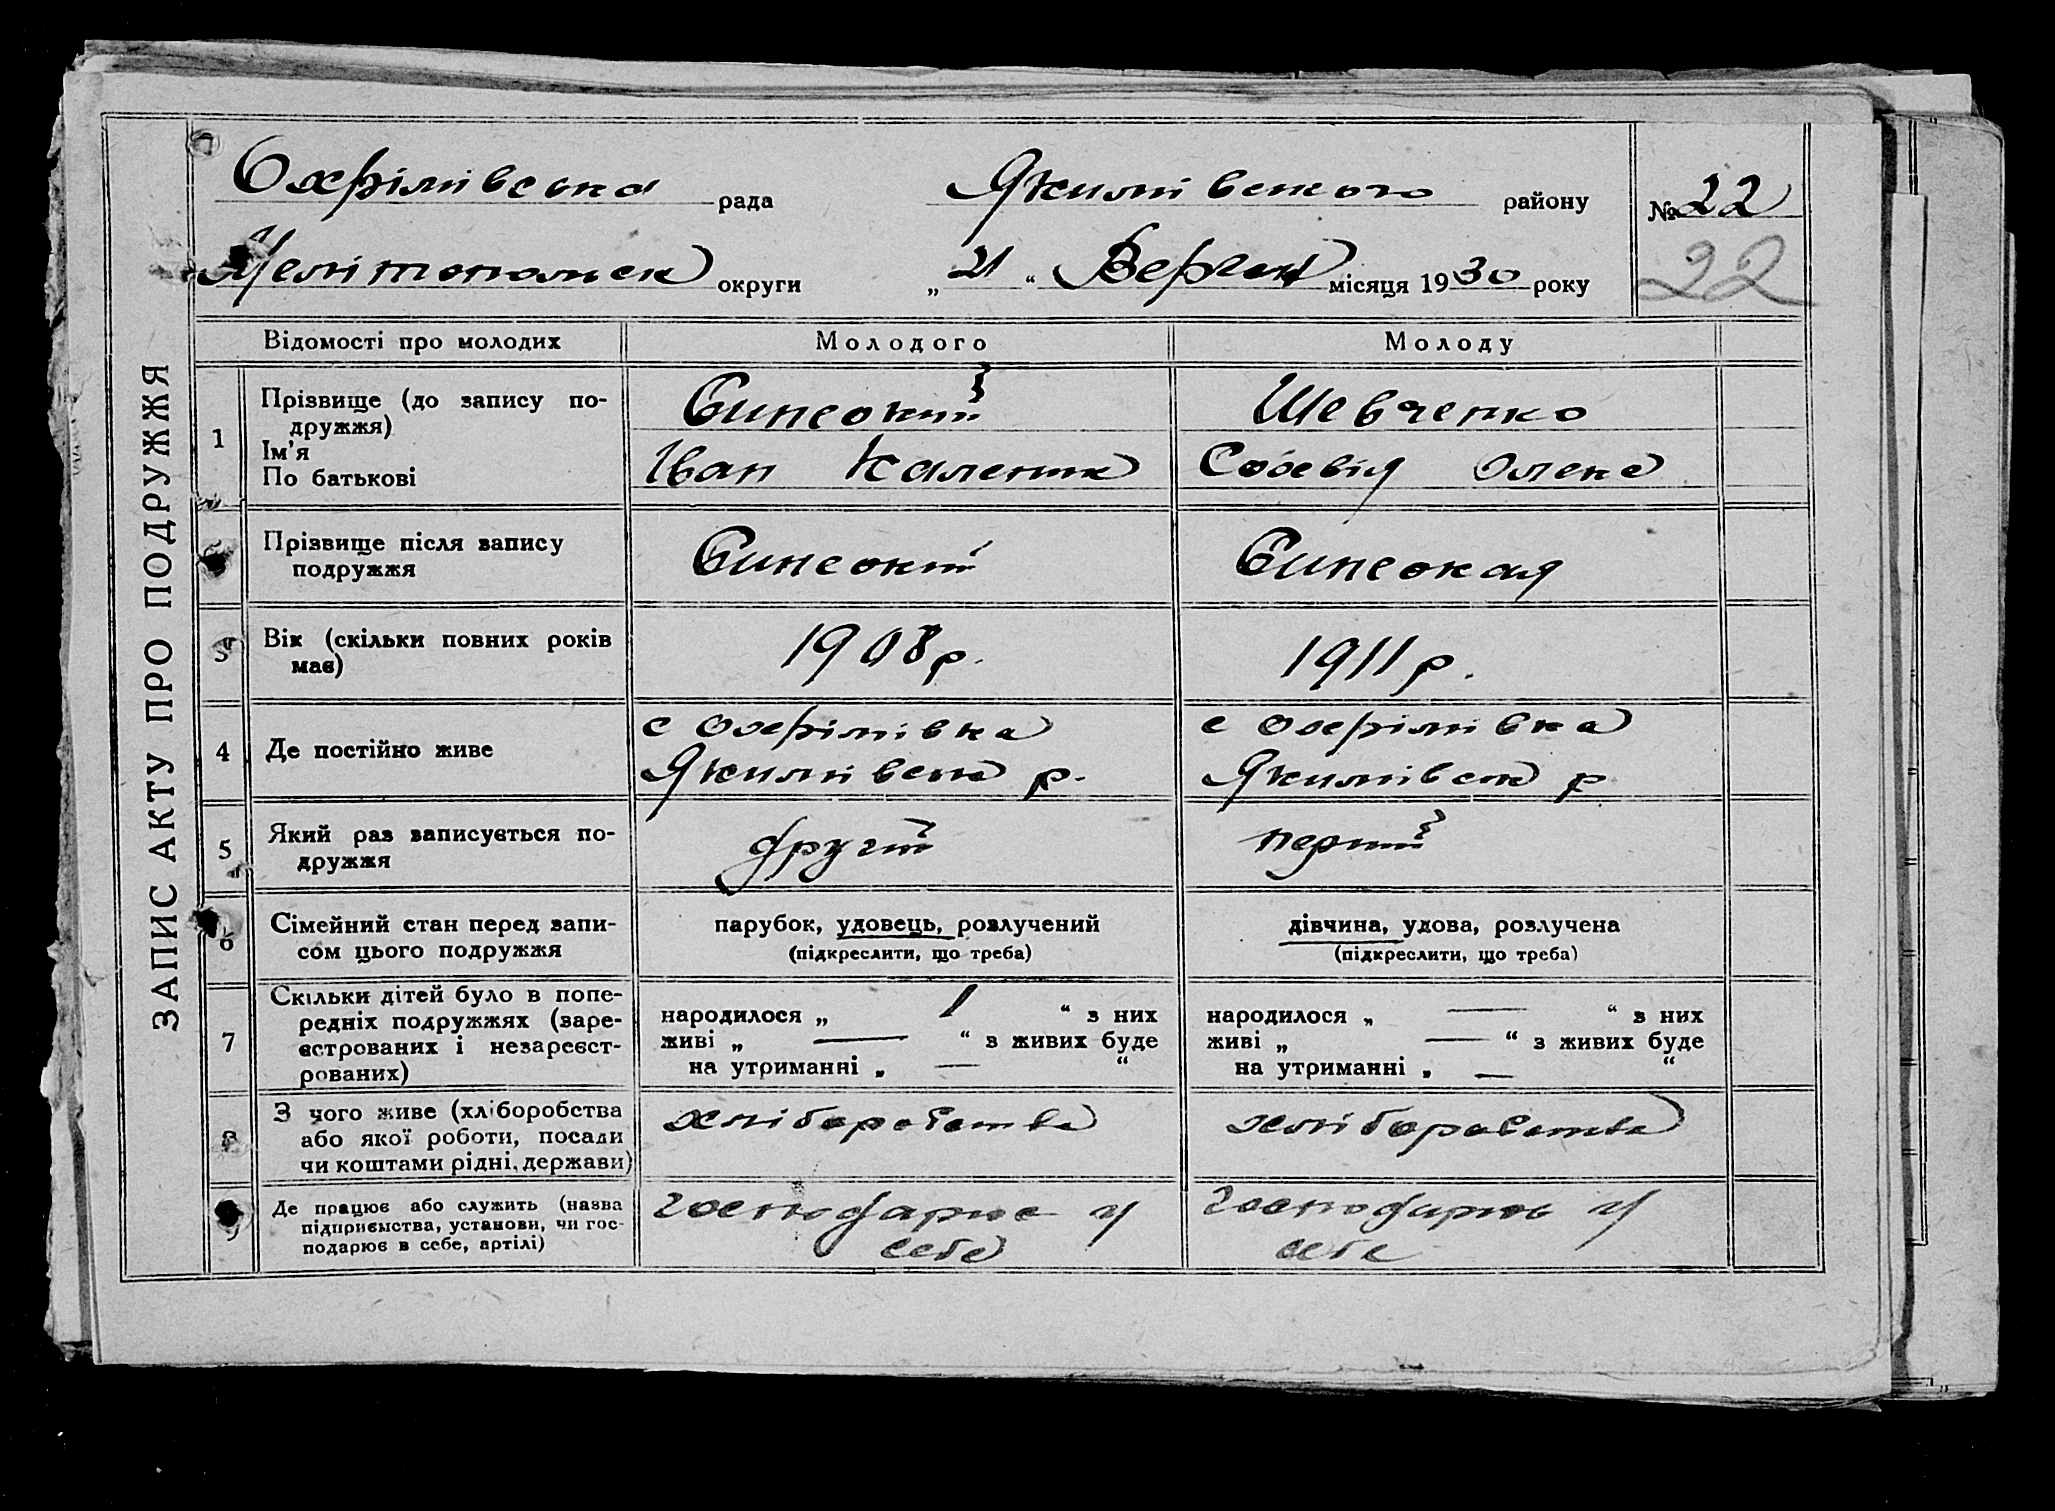 ЗАПИС АКТУ ПРО ПОДРУЖЖЯ
Охрімівська рада Якимівського району № 22
Мелітопольск округи „ 21 “ Верхня місяця 1930 року 22
Відомості про молодих Молодого Молоду
1 Прізвище (до запису по-
дружжя)
Ім'я
По батькові
Синеокий Шевченко
Іван Каленик Олекс
Прізвище після запису
подружжя
Синеокий Синеокая
3 Вік (скільки повних років
має)
1908 р. 1911 р.
4 Де постійно живе
с Охрімівка с Охрімівка
Якимівськ р. Якимівськ р
5 Який раз записується по-
дружжя
другий перший
6 Сімейний стан перед запи-
сом цього подружжя
парубок, удовець, розлучений
(підкреслити, що треба)
дівчина, удова, розлучена
(підкреслити, що треба)
7 Скільки дітей було в попе-
редніх подружжях (заре-
єстрованих і незареєст-
рованих)
народилося „ 1 “ з них
живі „ — “ з живих буде
на утриманні „ — “
народилося „ — “ з них
живі „ — “ з живих буде
на утриманні „ — “
8 З чого живе (хліборобства
або якої роботи, посади
чи коштами рідні, держави)
хліборобства хліборобства
9 Де працює або служить (назва
підприємства, установи, чи гос-
подарює в себе, артілі)
господарює у
себе
господарює у
себе